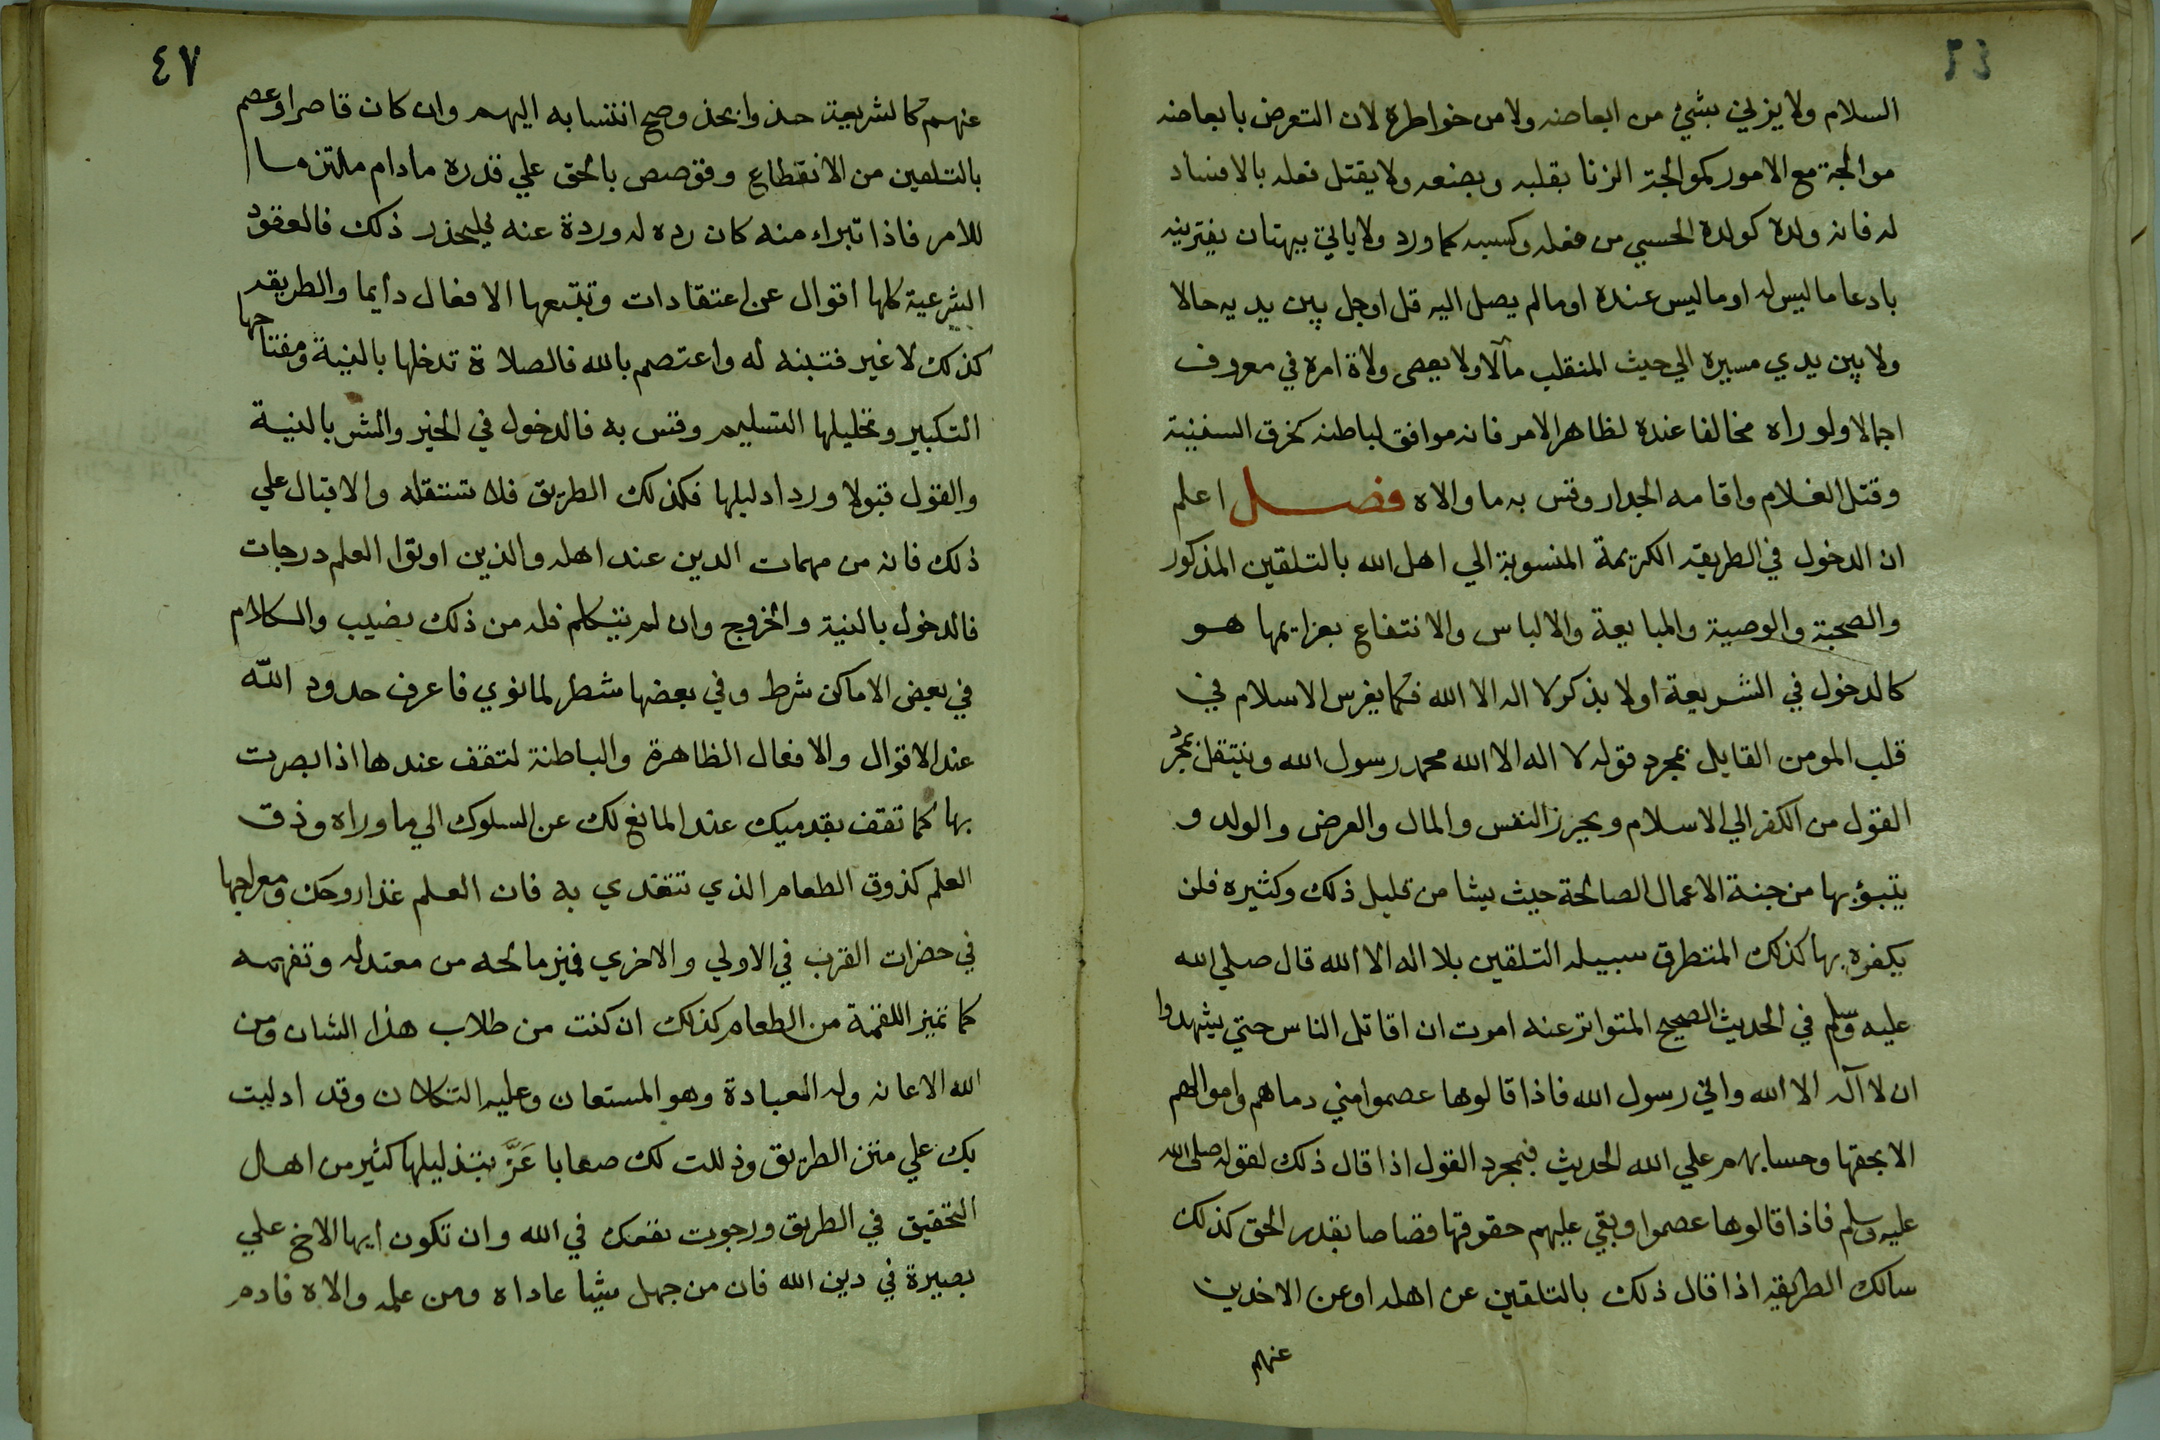 السلام ولا يزني بشيء من ابعاضه ولا من خواطره لان التعرض بابعاضه
موالجة مع الامور كموالجة الزنا بقلبه وبصنعه ولا يقتل فعله بالافساد
له فانه ولده كولده الحسي من فعله وكسبه كما ورد ولا ياتي ببهتان يفترينه
بادعا ما ليس له او ما ليس عنده او ما لم يصل اليه قل او جل بين يديه حالا
ولا بين يدي مسيره الي حيث المنقلب مآلا ولا يعصي ولاة امره في معروف
اجمالا ولو راه مخالفا عنده لظاهر الامر فانه موافق لباطنه كخرق السفينة
وقتل الغلام واقامه الجدار وقس به ما والاه فصل اعلم
ان الدخول في الطريقه الكريمة المنسوبة الي اهل الله بالتلقين المذكور
والصحبة والوصية والمبايعة والالباس والانتفاع بعزايمها هو
كالدخول في الشريعة اولا بذكر لا اله الا الله فكما يغرس الاسلام في
قلب المومن القايل بمجرد قوله لا اله الا الله محمد رسول الله وينتقل بمجرد
القول من الكفر الي الاسلام ويحرز النفس والمال والعرض والولد و
يتبوؤ بها من جنة الاعمال الصالحة حيث يشا من قليل ذلك وكثيره فلن
يكفره بها كذلك المتطرق سبيله التلقين بلا اله الا الله قال صلي الله
عليه وسلم في الحديث الصحيح المتواتر عنه امرت ان اقاتل الناس حتي يشهدوا
ان لا آله الا الله واني رسول الله فاذا قالوها عصموا مني دماهم واموالهم
الا بحقها وحسابهم علي الله الحديث فبمجرد القول اذا قال ذلك لقوله صلى الله
عليه وسلم فاذا قالوها عصموا وبقي عليهم حقوقها قصاصا بقدر الحق كذلك
سالك الطريقه اذا قال ذلك بالتلقين عن اهله او عن الاخذين
عنهم
٤٧
عنهم كالشريعة حذوا بحذو وصح انتسابه اليهم وان كان قاصرا وعصم
بالتلقين من الانقطاع وقوصص بالحق علي قدره مادام ملتزما
للامر فاذا تبراء منه كان رده له وردة عنه فليحذر ذلك فالعقود
الشرعية كلها اقوال عن اعتقادات وتتبعها الافعال دايما والطريقه
كذلك لا غير فتنبه له واعتصم بالله فالصلاة تدخلها بالنية ومفتاحها
التكبير وتحليلها التسليم وقس به فالدخول في الخير والشر بالنية
والقول قبولا وردا دليلها فكذلك الطريق فلا تستقله والاقبال علي
ذلك فانه من مهمات الدين عند اهله والذين اوتوا العلم درجات
فالدخول بالنية والخروج وان لم يتكلم فله من ذلك نصيب والكلام
في بعض الاماكن شرط وفي بعضها شطر لما نوي فاعرف حدود الله
عند الاقوال والافعال الظاهرة والباطنة لتقف عندها اذا بصرت
بها كما تقف بقدميك عند المانع لك عن السلوك الي ما وراه وذق
العلم كذوق الطعام الذي تتغدي به فان العلم غذا روحك ومعراجها
في حضرات القرب في الاولي والاخري فميز مالحه من معتدله وتفهمه
كما تميز اللقمة من الطعام كذلك ان كنت من طلاب هذا الشان ومن
الله الاعانه وله العبادة وهو المستعان وعليه التكلان وقد ادليت
بك علي متن الطريق وذللت لك صعابا عَزَّ بتذليلها كثير من اهل
التحقيق في الطريق ورجوت نفعك في الله وان تكون ايها الاخ علي
بصيرة في دين الله فان من جهل شيا عاداه ومن علمه والاه فادم